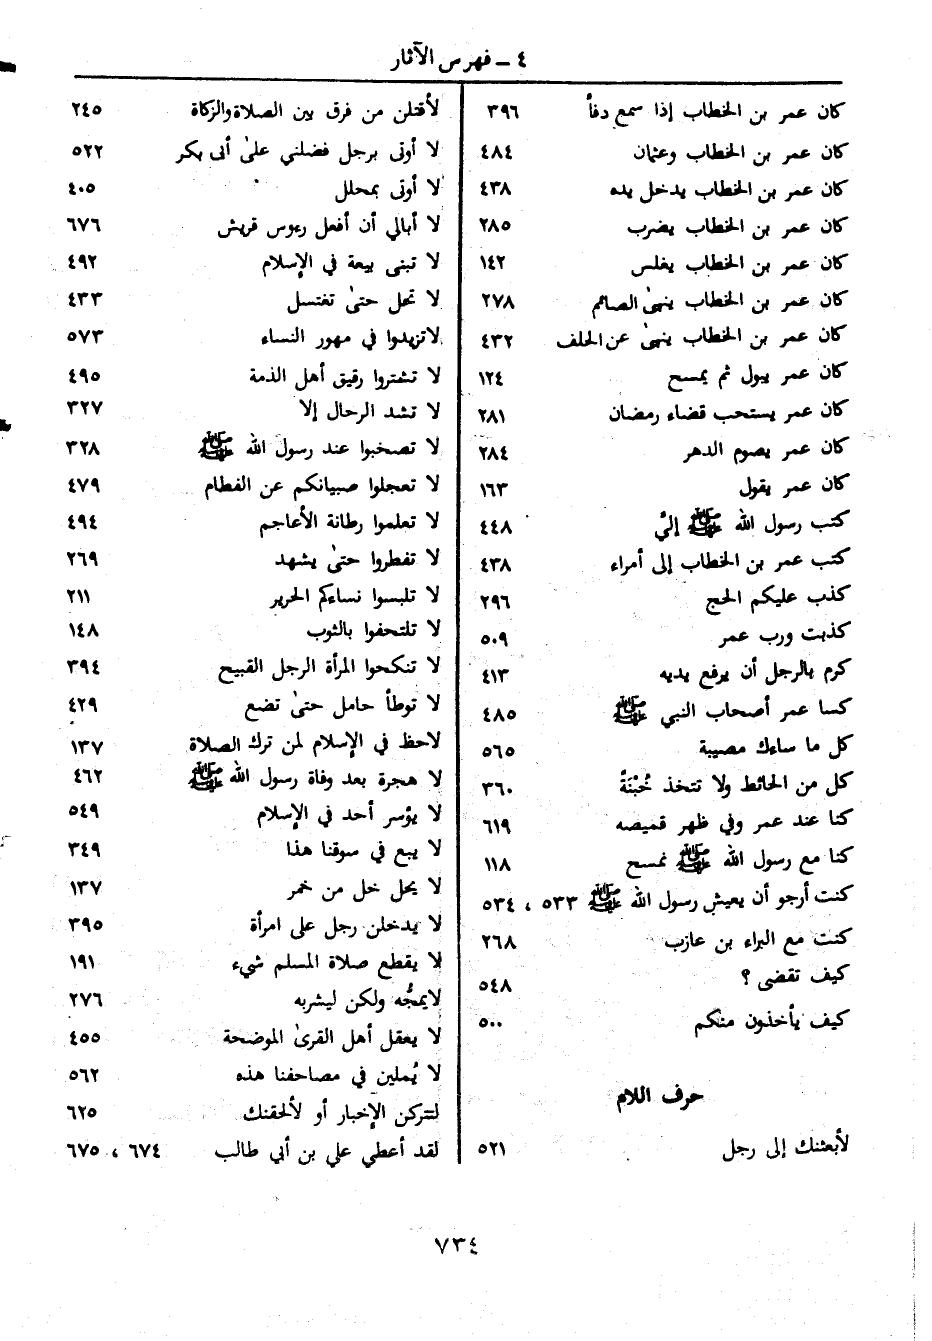 ٤ ــ فهرس الآثار
كان عمر بن الخطاب إذا سمع دفاً ٣٩٦
كان عمر بن الخطاب وعثمان ٤٨٤
كان عمر بن الخطاب يدخل يده ٤٣٨
كان عمر بن الخطاب يضرب ٢٨٥
كان عمر بن الخطاب يغلس ١٤٢
كان عمر بن الخطاب ينهىٰ الصائم ٢٧٨
كان عمر بن الخطاب ينهىٰ عن الحلف ٤٣٢
كان عمر يبول ثم يمسح ١٢٤
كان عمر يستحب قضاء رمضان ٢٨١
كان عمر يصوم الدهر ٢٨٤
كان عمر يقول ١٦٣
كتب رسول الله ﷺ إليَّ ٤٤٨
كتب عمر بن الخطاب إلى أمراء ٤٣٨
كذب عليكم الحج ٢٩٦
كذبت ورب عمر ٥٠٩
كرم بالرجل أن يرفع يديه ٤١٣
كسا عمر أصحاب النبي ﷺ ٤٨٥
كل ما ساءك مصيبة ٥٦٥
كل من الحائط ولا تتخذ خُبْنَةً ٣٦٠
كنا عند عمر وفي ظهر قميصه ٦١٩
كنا مع رسول الله ﷺ نمسح ١١٨
كنت أرجو أن يعيش رسول الله ﷺ ٥٣٣ ، ٥٣٤
كنت مع البراء بن عازب ٢٦٨
كيف تقضى ؟ ٥٤٨
كيف يأخذون منكم ٥٠٠
حرف اللام
لأبعثنك إلى رجل ٥٢١
لأقتلن من فرق بين الصلاة والزكاة ٢٤٥
لا أوتى برجل فضلني علىٰ أبى بكر ٥٢٢
لا أوتى بمحلل ٤٠٥
لا أبالي أن أفعل رءوس قريش ٦٧٦
لا تبنى بيعة في الإسلام ٤٩٢
لا تحل حتىٰ تغتسل ٤٣٣
لاتزيدوا في مهور النساء ٥٧٣
لا تشتروا رقيق أهل الذمة ٤٩٥
لا تشد الرحال إلا ٣٢٧
لا تصخبوا عند رسول الله ﷺ ٣٢٨
لا تعجلوا صبيانكم عن الفطام ٤٧٩
لا تعلموا رطانة الأعاجم ٤٩٤
لا تفطروا حتىٰ يشهد ٢٦٩
لا تلبسوا نساءكم الحرير ٢١١
لا تلتحفوا بالثوب ١٤٨
لا تنكحوا المرأة الرجل القبيح ٣٩٤
لا توطأ حامل حتىٰ تضع ٤٢٩
لاحظ في الإسلام لمن ترك الصلاة ١٣٧
لا هجرة بعد وفاة رسول الله ﷺ ٤٦٢
لا يؤسر أحد في الإسلام ٥٤٩
لا يبع في سوقنا هذا ٣٤٩
لا يحل خل من خمر ١٣٧
لا يدخلن رجل على امرأة ٣٩٥
لا يقطع صلاة المسلم شيء ١٩١
لايمجُّه ولكن ليشربه ٢٧٦
لا يعقل أهل القرىٰ الموضحة ٤٥٥
لا يُملين في مصاحفنا هذه ٥٦٢
لتتركن الإخبار أو لألحقنك ٦٢٥
لقد أعطي علي بن أبي طالب ٦٧٤ ، ٦٧٥
٧٣٤